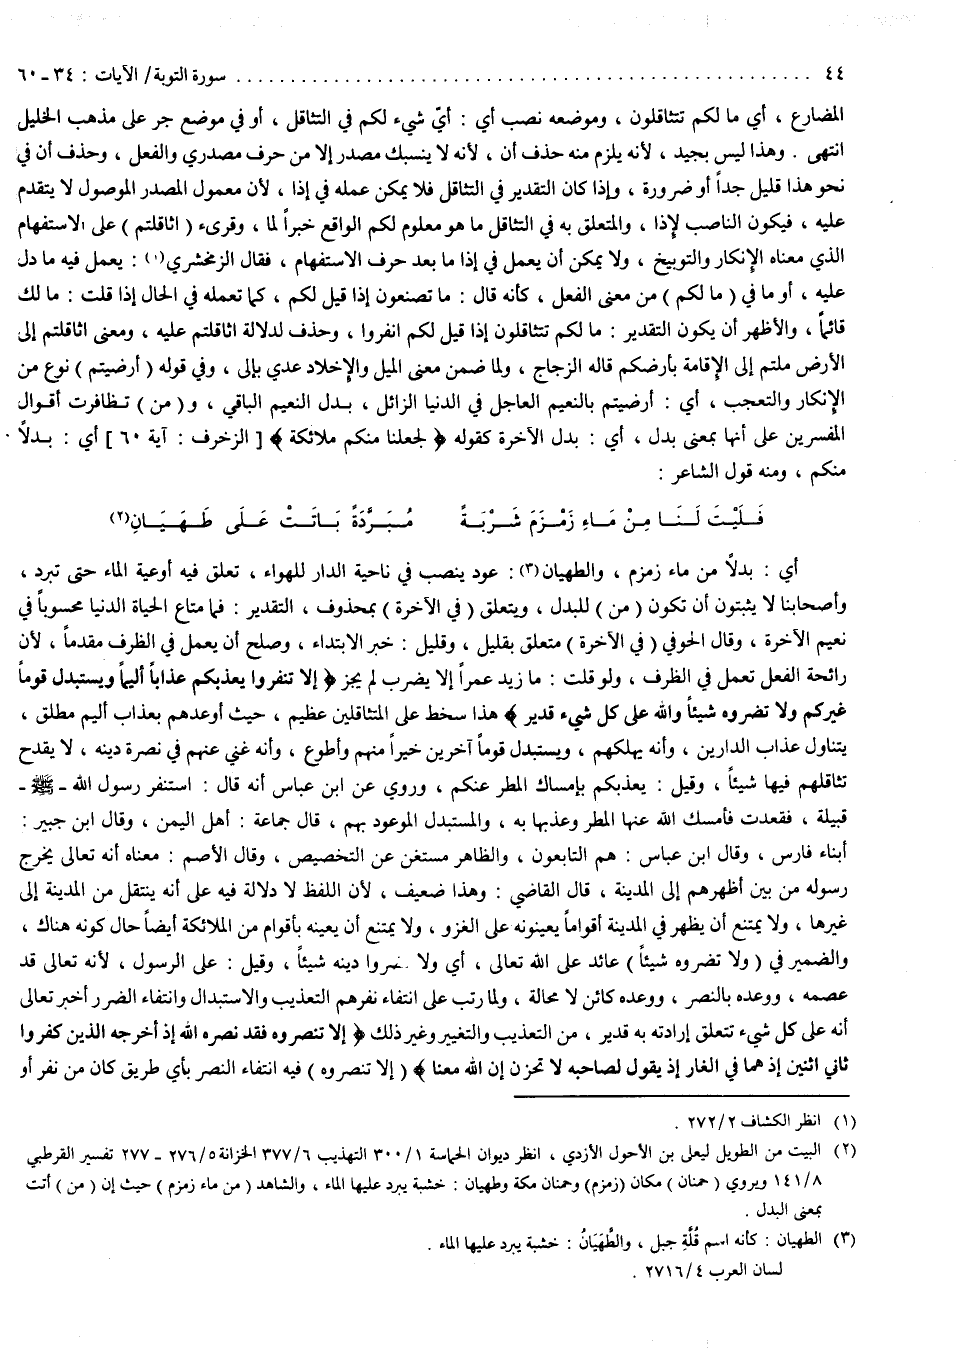 ٤٤ ........................................ سورة التوبة/ الآيات : ٣٤ ـ ٦٠
المضارع ، أي ما لكم تتثاقلون ، وموضعه نصب أي : أيّ شيء لكم في التثاقل ، أو في موضع جر على مذهب الخليل
انتهى . وهذا ليس بجيد ، لأنه يلزم منه حذف أن ، لأنه لا ينسبك مصدر إلا من حرف مصدري والفعل ، وحذف أن في
نحو هذا قليل جداً أو ضرورة ، وإذا كان التقدير في التثاقل فلا يمكن عمله في إذا ، لأن معمول المصدر الموصول لا يتقدم
عليه ، فيكون الناصب لإذا ، والمتعلق به في التثاقل ما هو معلوم لكم الواقع خبراً لما ، وقرىء ( اثاقلتم ) على الاستفهام
الذي معناه الإنكار والتوبيخ ، ولا يمكن أن يعمل في إذا ما بعد حرف الاستفهام ، فقال الزمخشري(١) : يعمل فيه ما دل
عليه ، أو ما في ( ما لكم ) من معنى الفعل ، كأنه قال : ما تصنعون إذا قيل لكم ، كما تعمله في الحال إذا قلت : ما لك
قائماً ، والأظهر أن يكون التقدير : ما لكم تتثاقلون إذا قيل لكم انفروا ، وحذف لدلالة اثاقلتم عليه ، ومعنى اثاقلتم إلى
الأرض ملتم إلى الإقامة بأرضكم قاله الزجاج ، ولما ضمن معنى الميل والإخلاد عدي بإلى ، وفي قوله ( أرضيتم ) نوع من
الإنكار والتعجب ، أي : أرضيتم بالنعيم العاجل في الدنيا الزائل ، بـدل النعيم الباقي ، و( من ) تـظافرت أقـوال
المفسرين على أنها بمعنى بدل ، أي : بدل الآخرة كقوله ﴿ لجعلنا منكم ملائكة ﴾ [ الزخرف : آية ٦٠ ] أي : بدلاً
منكم ، ومنه قول الشاعر :
فَـلَيْـتَ لَـنَـا مِـنْ مَـاءِ زَمْـزَمَ شَـرْبَـةً مُـبَـرَّدَةً بَـاتَـتْ عَـلَـى طَـهَـيَـانِ(٢)
أي : بدلاً من ماء زمزم ، والطهيان(٣) : عود ينصب في ناحية الدار للهواء ، تعلق فيه أوعية الماء حتى تبرد ،
وأصحابنا لا يثبتون أن تكون ( من ) للبدل ، ويتعلق ( في الآخرة ) بمحذوف ، التقدير : فما متاع الحياة الدنيا محسوباً في
نعيم الآخرة ، وقال الحوفي ( في الآخرة ) متعلق بقليل ، وقليل : خبر الابتداء ، وصلح أن يعمل في الظرف مقدماً ، لأن
رائحة الفعل تعمل في الظرف ، ولو قلت : ما زيد عمراً إلا يضرب لم يجز ﴿ إلا تنفروا يعذبكم عذاباً أليماً ويستبدل قوماً
غيركم ولا تضروه شيئاً والله على كل شيء قدير ﴾ هذا سخط على المتثاقلين عظيم ، حيث أوعدهم بعذاب أليم مطلق ،
يتناول عذاب الدارين ، وأنه يهلكهم ، ويستبدل قوماً آخرين خيراً منهم وأطوع ، وأنه غني عنهم في نصرة دينه ، لا يقدح
تثاقلهم فيها شيئاً ، وقيل : يعذبكم بإمساك المطر عنكم ، وروي عن ابن عباس أنه قال : استنفر رسول الله ـ ﷺ ـ
قبيلة ، فقعدت فأمسك الله عنها المطر وعذبها به ، والمستبدل الموعود بهم ، قال جماعة : أهل اليمن ، وقال ابن جبير :
أبناء فارس ، وقال ابن عباس : هم التابعون ، والظاهر مستغن عن التخصيص ، وقال الأصم : معناه أنه تعالى يخرج
رسوله من بين أظهرهم إلى المدينة ، قال القاضي : وهذا ضعيف ، لأن اللفظ لا دلالة فيه على أنه ينتقل من المدينة إلى
غيرها ، ولا يمتنع أن يظهر في المدينة أقواماً يعينونه على الغزو ، ولا يمتنع أن يعينه بأقوام من الملائكة أيضاً حال كونه هناك ،
والضمير في ( ولا تضروه شيئاً ) عائد على الله تعالى ، أي ولا تضروا دينه شيئاً ، وقيل : على الرسول ، لأنه تعالى قد
عصمه ، ووعده بالنصر ، ووعده كائن لا محالة ، ولما رتب على انتفاء نفرهم التعذيب والاستبدال وانتفاء الضرر أخبر تعالى
أنه على كل شيء تتعلق إرادته به قدير ، من التعذيب والتغيير وغير ذلك ﴿ إلا تنصروه فقد نصره الله إذ أخرجه الذين كفروا
ثاني اثنين إذ هما في الغار إذ يقول لصاحبه لا تحزن إن الله معنا ﴾ ( إلا تنصروه ) فيه انتفاء النصر بأي طريق كان من نفر أو
(١) انظر الكشاف ٢٧٢/٢ .
(٢) البيت من الطويل ليعلى بن الأحول الأزدي ، انظر ديوان الحماسة ٣٠٠/١ التهذيب ٣٧٧/٦ الخزانة ٢٧٦/٥ ـ ٢٧٧ تفسير القرطبي
١٤١/٨ ويروي ( حمنان ) مكان (زمزم) وحمنان مكة وطهيان : خشبة يبرد عليها الماء ، والشاهد ( من ماء زمزم ) حيث إن ( من ) أتت
بمعنى البدل .
(٣) الطهيان : كأنه اسم قُلَّةِ جبل ، والطَّهَيَانُ : خشبة يبرد عليها الماء .
لسان العرب ٢٧١٦/٤ .